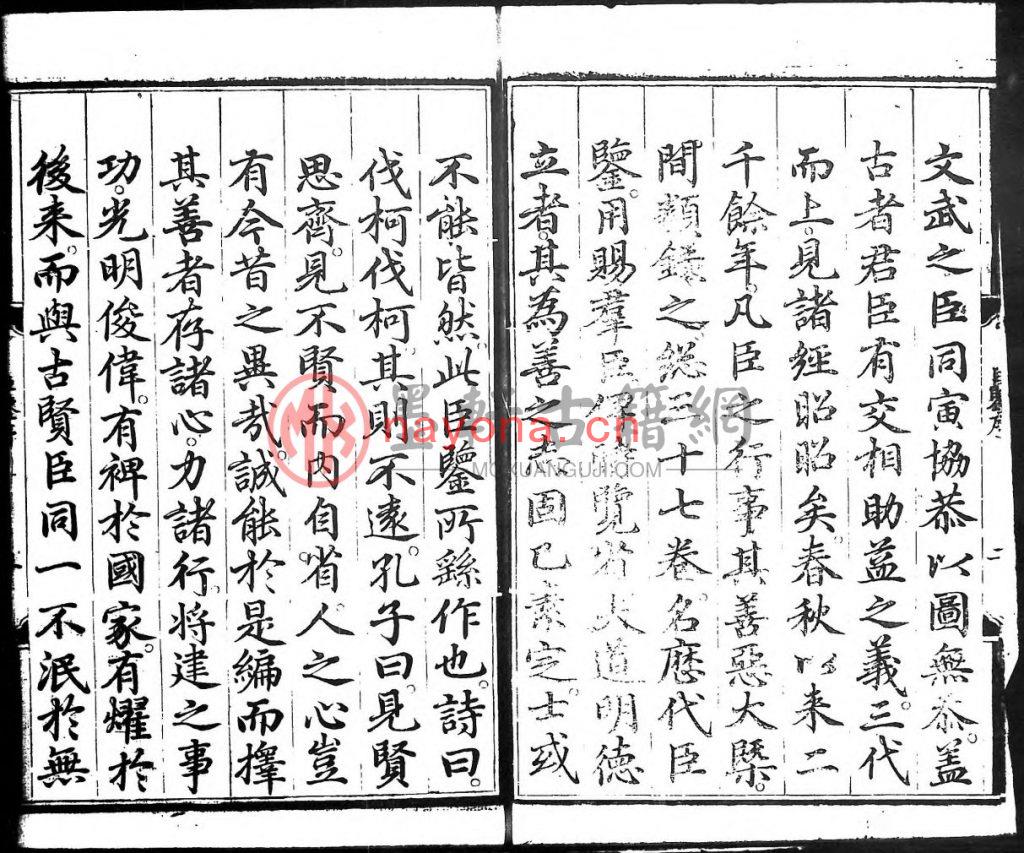 文武之臣同寅協恭以圖無忝。盖
古者君臣有交相助益之義。三代
而上。見諸經昭昭矣。春秋以来二
千餘年。凡臣之行事其善惡大槩。
間類錄之。総三十七卷。名歷代臣
鑒。用賜羣臣覽省夫道明德
立者。其為善之志固已素定。士或
不能皆然。此臣鑒所繇作也。詩曰。
伐柯伐柯。其則不遠。孔子曰。見賢
思齊。見不賢而內自省。人之心豈
有今昔之異哉。誠能於是編而擇
其善者存諸心。力諸行。將建之事
功。光明俊偉。有裨於國家。有耀於
後来。而與古賢臣同一不泯於無
墨軒古籍網
nayona.cn
MOXUANGUJI.COM